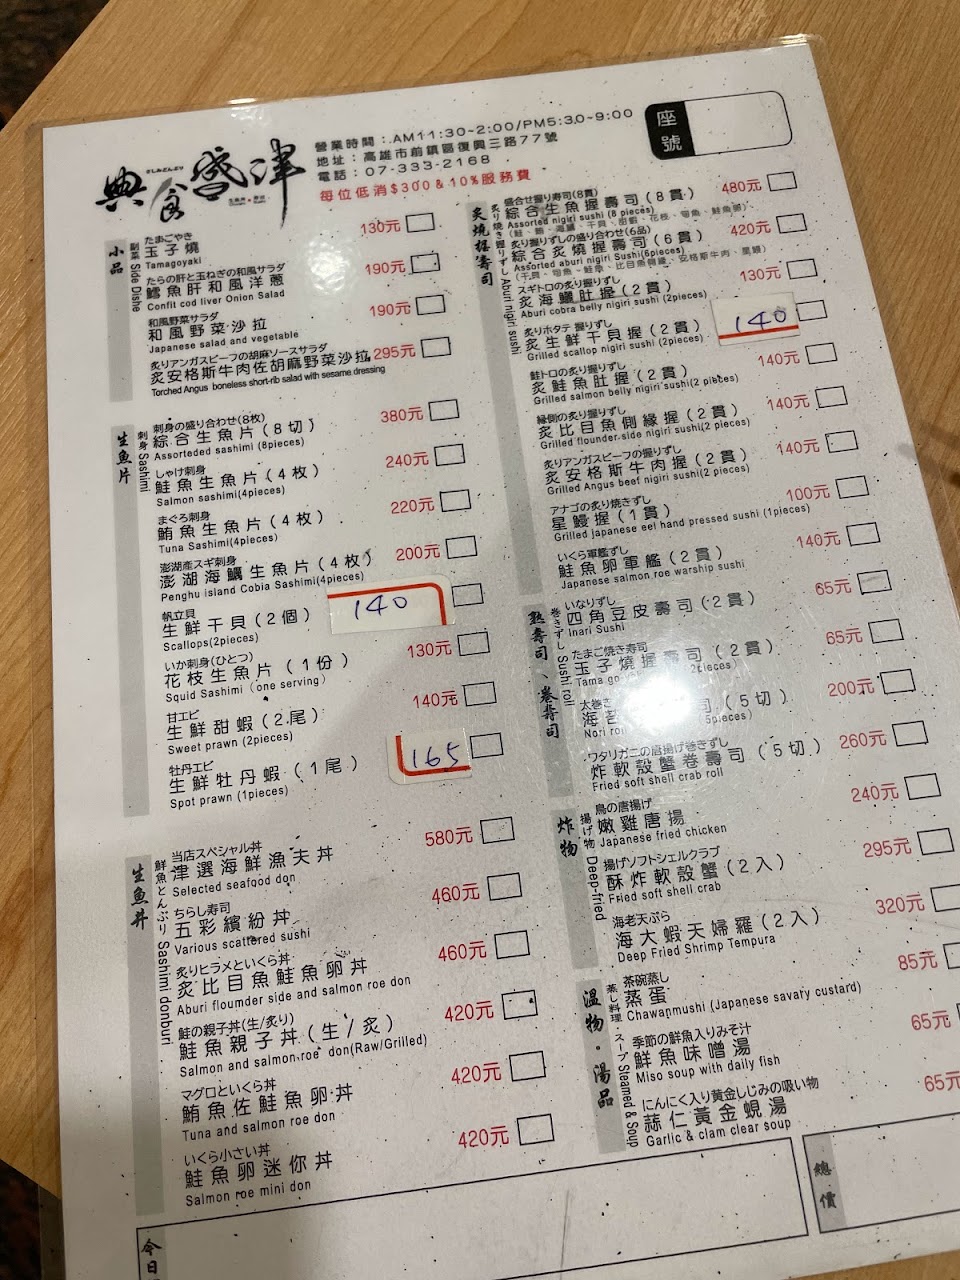 典食盛津
さしみどんぶり
營業時間：AM11:30-2:00/PM5:30-9:00
地址：高雄市前鎮區復興三路77號
電話：07-333-2168
每位低消$300&10%服務費
座號
小品
副菜 Side Dishe
たまごやき
玉子燒 130元
Tamagoyaki
たらの肝と玉ねぎの和風サラダ
鱈魚肝和風洋蔥 190元
Confit cod liver Onion Salad
和風野菜サラダ
和風野菜沙拉 190元
Japanese salad and vegetable
炙りアンガスビーフの胡麻ソースサラダ
炙安格斯牛肉佐胡麻野菜沙拉 295元
Torched Angus boneless short-rib salad with sesame dressing
生魚片
刺身 Sashimi
刺身の盛り合わせ(8枚)
綜合生魚片(8切) 380元
Assorteded sashimi (8pieces)
しゃけ刺身
鮭魚生魚片(4枚) 240元
Salmon sashimi(4pieces)
まぐろ刺身
鮪魚生魚片(4枚) 220元
Tuna Sashimi(4pieces)
澎湖產スギ刺身
澎湖海鱺生魚片(4枚) 200元
Penghu island Cobia Sashimi(4pieces)
帆立貝
生鮮干貝(2個) 140
Scallops(2pieces)
いか刺身(ひとつ)
花枝生魚片(1份) 130元
Squid Sashimi (one serving)
甘エビ
生鮮甜蝦(2尾) 140元
Sweet prawn (2pieces)
牡丹エビ
生鮮牡丹蝦(1尾) 165
Spot prawn (1pieces)
生魚丼
鮮魚とんぶり Sashimi donburi
当店スペシャル丼
津選海鮮漁夫丼 580元
Selected seafood don
ちらし寿司
五彩繽紛丼 460元
Various scattered sushi
炙りヒラメといくら丼
炙比目魚鮭魚卵丼 460元
Aburi floumder side and salmon roe don
鮭の親子丼(生/炙り)
鮭魚親子丼(生/炙) 420元
Salmon and salmon roe don(Raw/Grilled)
マグロといくら丼
鮪魚佐鮭魚卵丼 420元
Tuna and salmon roe don
いくら小さい丼
鮭魚卵迷你丼 420元
Salmon roe mini don
炙燒握壽司
炙り焼き握りずし Aburi nigiri sushi
盛合せ握り寿司(8貫)
綜合生魚握壽司(8貫) 480元
Assorted nigiri sushi (8 pieces)
炙り握りずしの盛り合わせ(6品)
綜合炙燒握壽司(6貫) 420元
Assorted aburi nigiri Sushi(6pieces)
スギトロの炙り握りずし
炙海鱺肚握(2貫) 130元
Aburi cobra belly nigiri sushi (2pieces)
炙りホタテ 握りずし
炙生鮮干貝握(2貫) 140
Grilled scallop nigiri sushi (2pieces)
鮭トロの炙り握りずし
炙鮭魚肚握(2貫) 140元
Grilled salmon belly nigiri sushi(2 pieces)
縁側の炙り握りずし
炙比目魚側緣握(2貫) 140元
Grilled flounder side nigiri sushi(2 pieces)
炙りアンガスビーフの握りずし
炙安格斯牛肉握(2貫) 140元
Grilled Angus beef nigiri sushi(2 pieces)
アナゴの炙り焼きずし
星鰻握(1貫) 100元
Grilled japanese eel hand pressed sushi (1pieces)
いくら軍艦ずし
鮭魚卵軍艦(2貫) 140元
Japanese salmon roe warship sushi
熟壽司、卷壽司
巻きずし Sushi roll
いなりずし
四角豆皮壽司(2貫) 65元
Inari Sushi
たまご焼き寿司
玉子燒握壽司(2貫) 65元
Tama go
太巻き
海苔 司(5切) 200元
Nori
ワタリガニの唐揚げ巻きずし
炸軟殼蟹卷壽司(5切) 260元
Fried soft shell crab roll
炸物
揚げ物 Deep-fried
鳥の唐揚げ
嫩雞唐揚 240元
Japanese fried chicken
揚げソフトシェルクラブ
酥炸軟殼蟹(2入) 295元
Fried soft shell crab
海老天ぷら
海大蝦天婦羅(2入) 320元
Deep Fried Shrimp Tempura
溫物・湯品
蒸し料理 スープ Steamed & Soup
茶碗蒸し
蒸蛋 85元
Chawanmushi (Japanese savaty custard)
季節の鮮魚入りみそ汁
鮮魚味噌湯 65元
Miso soup with daily fish
にんにく入り黄金しじみの吸い物
蒜仁黃金蜆湯 65元
Garlic & clam clear soup
今日
總價